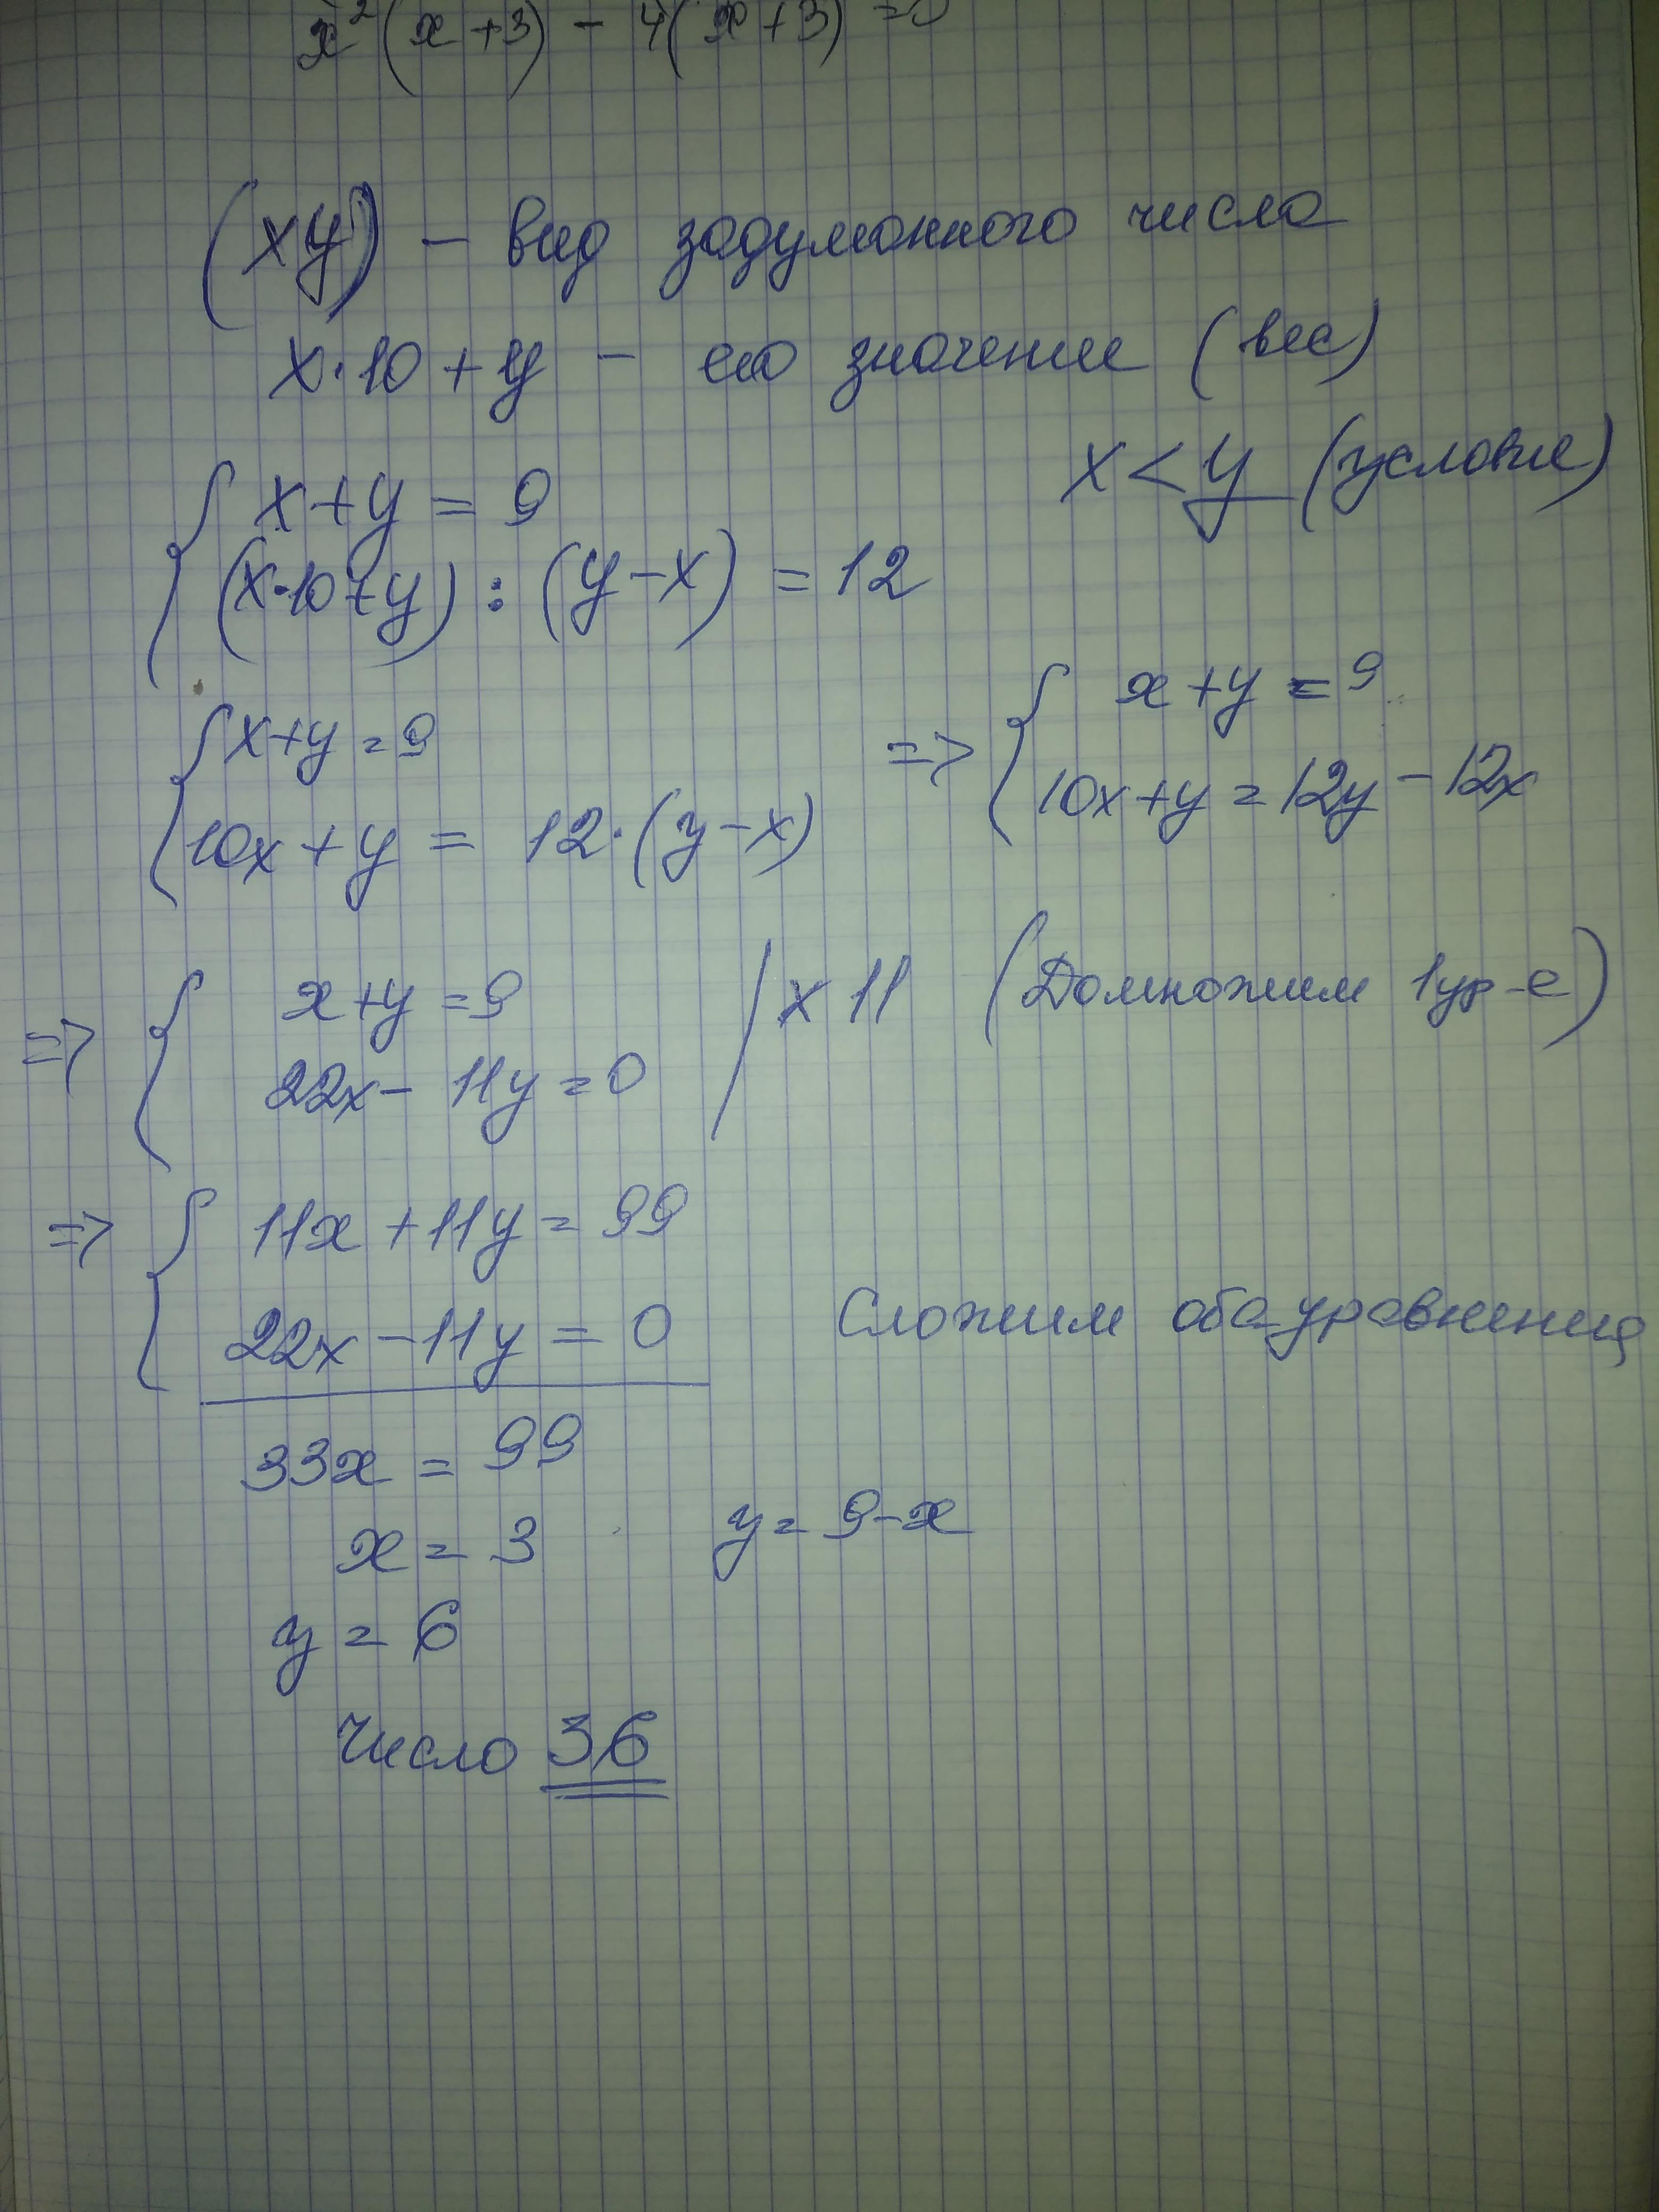 x²(x+3) - 4(x+3) =0
(xy) - вид задуманного числа
x·10 + y - его значение (вес)
x < y (условие)
x+y = 9
(x·10+y) : (y-x) = 12
x+y = 9
10x + y = 12·(y-x)
=> x+y = 9
10x+y = 12y - 12x
=> x+y = 9 | x 11 (Домножим 1 ур-е)
22x - 11y = 0
=> 11x + 11y = 99
22x - 11y = 0 Сложим оба уравнения
33x = 99
x = 3 y = 9-x
y = 6
Число 36